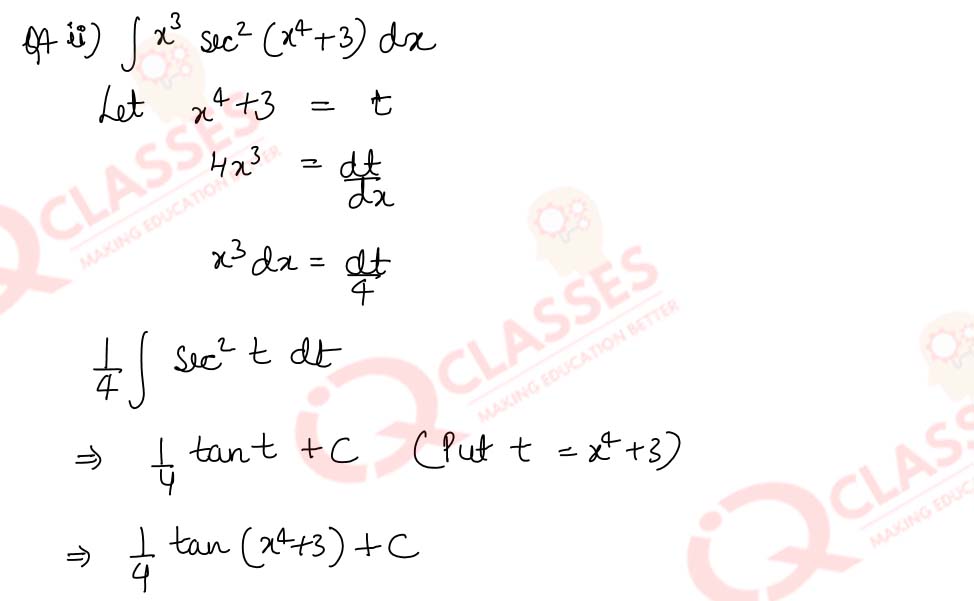 Q4 ii) ∫ x³ sec² (x⁴+3) dx
Let x⁴+3 = t
4x³ = dt/dx
x³dx = dt/4
1/4 ∫ sec² t dt
⇒ 1/4 tant + C (Put t = x⁴+3)
⇒ 1/4 tan (x⁴+3) + C
iQ CLASSES
MAKING EDUCATION BETTER
iQ CLASSES
MAKING EDUCATION BETTER
iQ CLASS
MAKING EDUC